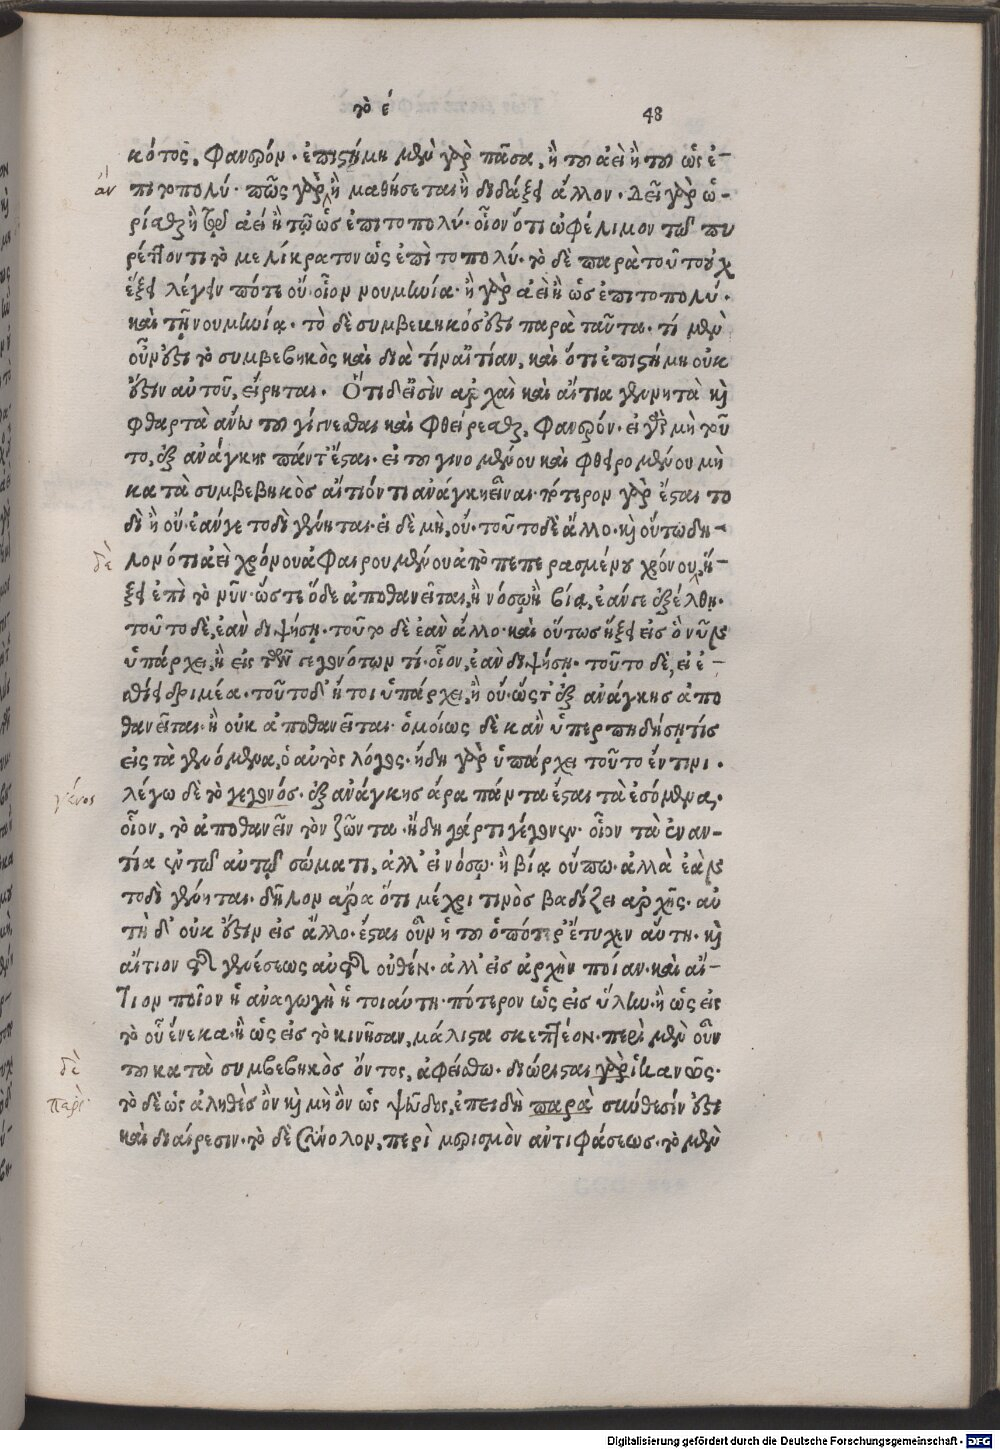 τὸ έ 48
κότος, φανερόν. ἐπιστήμη μὲν γὰρ πᾶσα, ἢ τοῦ ἀεὶ ἢ τοῦ ὡς ἐ-
ἂν πιτοπολύ. πῶς γὰρ ἢ μαθήσεται ἢ διδάξει ἄλλον. Δεῖ γὰρ ὡ-
ρίσθαι ἢ τῷ ἀεί ἢ τῷ ὡς ἐπιτοπολύ. οἷον ὅτι ὠφέλιμον τῷ πυ
ρέττοντι τὸ μελίκρατον ὡς ἐπὶ τοπολύ. τὸ δὲ παρὰ τοῦτο οὐχ
ἕξει λέγειν πότε οὔ οἷον νουμηνία. ἢ γὰρ ἀεὶ ἢ ὡς ἐπιτοπολύ.
καὶ τῇ νουμηνίᾳ. τὸ δὲ συμβεκηκός ἐστι παρὰ ταῦτα. τί μὲν
οὖν ἐστι τὸ συμβεβηκὸς καὶ διὰ τίν αἰτίαν, καὶ ὅτι ἐπιστήμη οὐκ
ἔστιν αὐτοῦ, εἴρηται. Ὅτι δ εἰσὶν ἀρχαὶ καὶ αἴτια γενητὰ κὶ
φθαρτὰ ἄνευ τοῦ γίγνεσθαι καὶ φθείρεσθαι, φανερόν. εἰ γὰρ μὴ τοῦ
το, ἐξ ἀνάγκης πάντ' ἔσται. εἰ τοῦ γινομένου καὶ φθειρομένου μὴ
κατὰ συμβεβηκὸς αἴτιόν τι ἀνάγκη εἶναι. πότερον γὰρ ἔσται το
δὶ ἢ οὔ. ἐάν γε τοδὶ γένηται. εἰ δὲ μὴ, οὔ. τοῦτο δὲ ἄλλο. κὶ οὕτω δῆ-
δὲ λον ὅτι ἀεὶ χρόνου ἀφαιρουμένου ἀπὸ πεπερασμένου χρόνου, ἥ-
ξει ἐπὶ τὸ νῦν. ὥστε ὅδε ἀποθανεῖται, ἢ νόσῳ ἢ βίᾳ, ἐάν γε ἐξέλθῃ.
τοῦτο δὲ, ἐὰν διψήσῃ. τοῦτο δὲ ἐὰν ἄλλο. καὶ οὕτως ἥξει εἰς ὃ νῦν
ὑπάρχει, ἢ εἰς τῶν γεγονότων τί. οἷον, ἐὰν διψήσῃ. τοῦτο δὲ, εἰ ἐ-
σθίει δριμέα. τοῦτο δ' ἤτοι ὑπάρχει, ἢ οὔ. ὥστ' ἐξ ἀνάγκης ἀπο
θανεῖται. ἢ οὐκ ἀποθανεῖται. ὁμοίως δὲ κἂν ὑπερπηδήσῃ τίς
εἰς τὰ γενόμενα, ὁ αὐτὸς λόγος. ἤδη γὰρ ὑπάρχει τοῦτο ἔν τινι.
γένος λέγω δὲ τὸ γεγονός. ἐξ ἀνάγκης ἄρα πάντα ἔσται τὰ ἐσόμενα,
οἷον, τὸ ἀποθανεῖν τὸν ζῶντα. ἤδη γάρ τι γέγονεν. οἷον τὰ ἐναν-
τία ἐν τῷ αὐτῷ σώματι, ἀλλ' εἰ νόσῳ. ἢ βίᾳ οὔπω. ἀλλὰ ἐὰν
τοδὶ γένηται. δῆλον ἄρα ὅτι μέχρι τινὸς βαδίζει ἀρχῆς. αὕ
τη δ' οὐκ ἔστιν εἰς ἄλλο. ἔσται οὖν ἡ τοῦ ὁπότερ' ἔτυχεν αὕτη. κὶ
αἴτιον τῆς γενέσεως αὐτῆς οὐθέν. ἀλλ' εἰς ἀρχὴν ποίαν. καὶ αἴ-
τιον ποῖον ἡ ἀναγωγὴ ἡ τοιαύτη. πότερον ὡς εἰς ὕλην. ἢ ὡς εἰς
τὸ οὗ ἕνεκα. ἢ ὡς εἰς τὸ κινῆσαν, μάλιστα σκεπτέον. περὶ μὲν οὖν
δὲ τοῦ κατὰ συμβεβηκὸς ὄντος, ἀφείσθω. διώρισται γὰρ ἱκανῶς.
παρὶ τὸ δὲ ὡς ἀληθὲς ὂν κὶ μὴ ὂν ὡς ψεῦδος, ἐπειδὴ παρὰ σύνθεσίν ἐστι
καὶ διαίρεσιν. τὸ δὲ σύνολον, περὶ μερισμὸν ἀντιφάσεως. τὸ μὲν
Digitalisierung gefördert durch die Deutsche Forschungsgemeinschaft - DFG